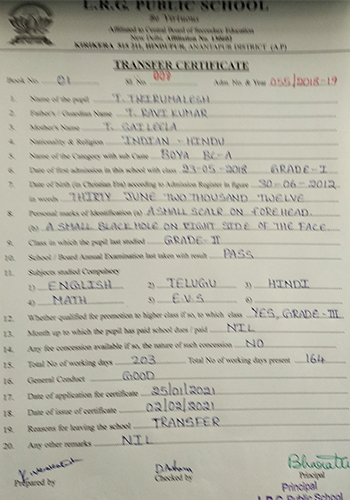 L.R.G. PUBLIC SCHOOL
Affiliated to Central Board of Secondary Education
New Delhi, Affiliation No.
KIRIKERA 515 211, HINDUPUR, ANANTAPUR DISTRICT (A.P)
TRANSFER CERTIFICATE
Book No. 01 Sl. No. 007 Adm. No. & Year 055/2018-19
1. Name of the pupil T. THIRUMALESH
2. Father's / Guardian Name T. RAVI KUMAR
3. Mother's Name T. GAILEELA
4. Nationality & Religion INDIAN - HINDU
5. Name of the Category with sub Caste BOYA BC-A
6. Date of first admission in this school with class 23-05-2018 GRADE-I
7. Date of birth (in Christian Era) according to Admission Register in figure 30-06-2012
in words THIRTY JUNE TWO THOUSAND TWELVE
8. Personal marks of Identification (a) A SMALL SCALR ON FOREHEAD.
(b) A SMALL BLACK HOLE ON RIGHT SIDE OF THE FACE
9. Class in which the pupil last studied GRADE-II
10. School / Board Annual Examination last taken with result PASS
11. Subjects studied Compulsory
1) ENGLISH 2) TELUGU 3) HINDI
4) MATH 5) E.V.S 6)
12. Whether qualified for promotion to higher class if so, to which class YES, GRADE-III
13. Month up to which the pupil has paid school dues / paid NIL
14. Any fee concession availed if so, the nature of such concession NO
15. Total No of working days 203 Total No of working days present 164
16. General Conduct GOOD
17. Date of application for certificate 25/01/2021
18. Date of issue of certificate 02/02/2021
19. Reasons for leaving the school TRANSFER
20. Any other remarks NIL
Prepared by Checked by Principal
Principal
L.R.G Public School